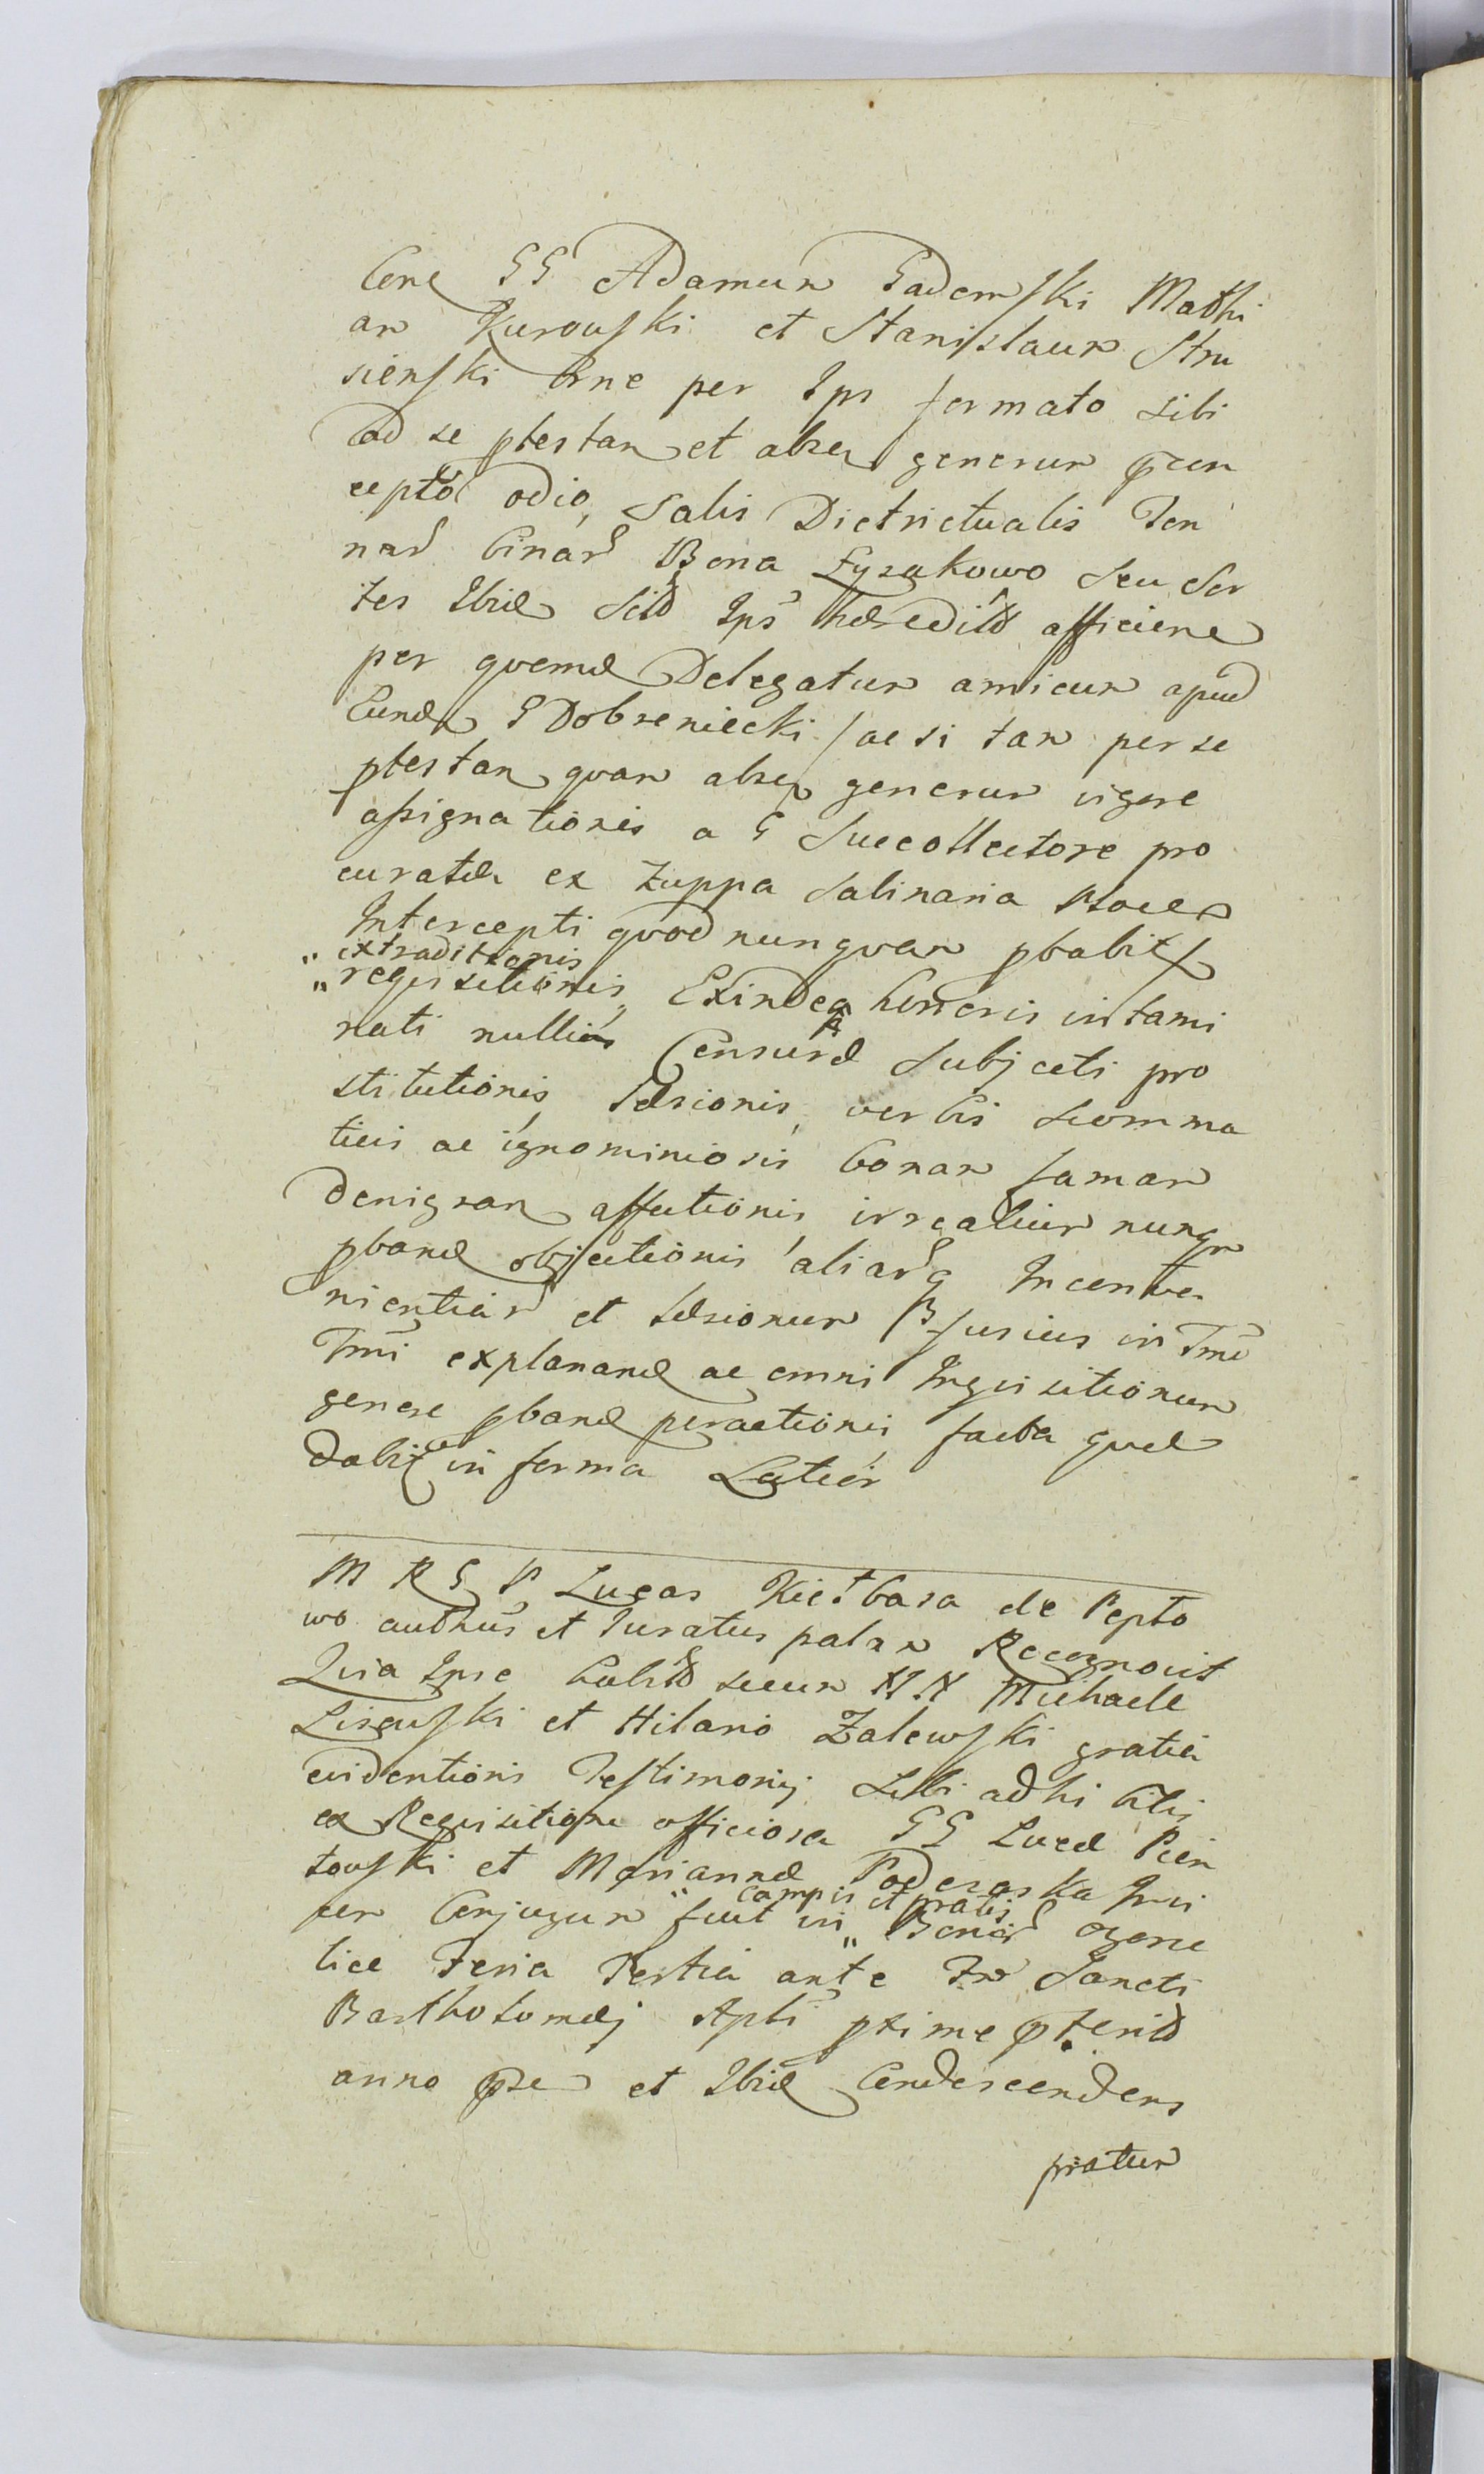 Cone GG Adamum Gadomski Mathi
am Kurowski et Stanislaum Stru
sienski Cone per Ips formato sibi
ad se ptestan et absq generum con
cepto odio, Salis Dictrictualis Ten
nar Binar Bona Łysakowo seu Sor
tes Ibid Scit Ips hæredit afficiene
per quemd Delegatum amicum apud
Eund G Dobreniecki ac si tam per se
ptestan quam absq generum vigore
assignationis a G Succollectore pro
curatæ ex Zuppa Salinaria
Intercepti quod nunquam pbabit
" extraditionis
" requisitionis, Exindeq honoris intami
nati nullius Censuræ Subjecti pro
stitutionis, læsionis, verbis scomma
ticis ac ignominiosis bonam famam
denigran affectionis, irrealium nunq
pband objectionis, aliarq Inconve
nientiar et læsionum fusius in Tmo
Tmi explanand ac omni Inquisitionum
genere pband peractionis, facta quæ
dabit in forma Latior
M R G P Lucas Kiełbasa de Pepło
wo authus et Juratus palam Recognovit
Quia Ipse habit secum N N Michaele
Lisowski et Hilario Zalewski gratia
evidentioris Testimonij Sibi adhi bitis
ex Requisitione officiosa GG Lucæ Pien
towski et Mariannæ Poderoska Invi
cem Conjugum fuit in " Bonis ozene
campis et pratis
lice Feria Tertia ante Fm Sancti
Bartholomæj Apli pxime pterit
anno pse et Ibid Condescendens
pratum